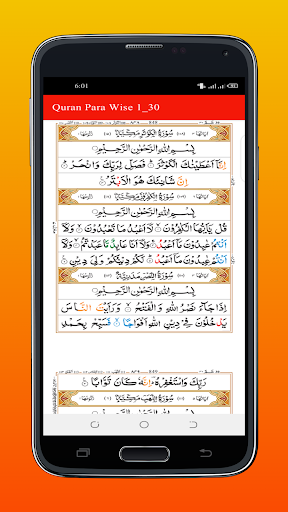 6:01
Quran Para Wise 1_30
سُورَةُ الْكَوْثَرِ مَكِّيَّةٌ
بِسْمِ اللهِ الرَّحْمٰنِ الرَّحِيْمِ
اِنَّاۤ اَعْطَيْنٰكَ الْكَوْثَرَ فَصَلِّ لِرَبِّكَ وَانْحَرْ
اِنَّ شَانِئَكَ هُوَ الْاَبْتَرُ
سُورَةُ الْكٰفِرُوْنَ مَكِّيَّةٌ
بِسْمِ اللهِ الرَّحْمٰنِ الرَّحِيْمِ
قُلْ يٰۤاَيُّهَا الْكٰفِرُوْنَ لَاۤ اَعْبُدُ مَا تَعْبُدُوْنَ وَلَاۤ
اَنْتُمْ عٰبِدُوْنَ مَاۤ اَعْبُدُ وَلَاۤ اَنَا عَابِدٌ مَّا عَبَدْتُّمْ وَلَاۤ
اَنْتُمْ عٰبِدُوْنَ مَاۤ اَعْبُدُ لَكُمْ دِيْنُكُمْ وَلِيَ دِيْنِ
سُورَةُ النَّصْرِ مَدَنِيَّةٌ
بِسْمِ اللهِ الرَّحْمٰنِ الرَّحِيْمِ
اِذَا جَآءَ نَصْرُ اللهِ وَالْفَتْحُ وَرَاَيْتَ النَّاسَ
يَدْخُلُوْنَ فِيْ دِيْنِ اللهِ اَفْوَاجًا فَسَبِّحْ بِحَمْدِ
رَبِّكَ وَاسْتَغْفِرْهُ اِنَّهٗ كَانَ تَوَّابًا
سُورَةُ اللَّهَبِ مَكِّيَّةٌ